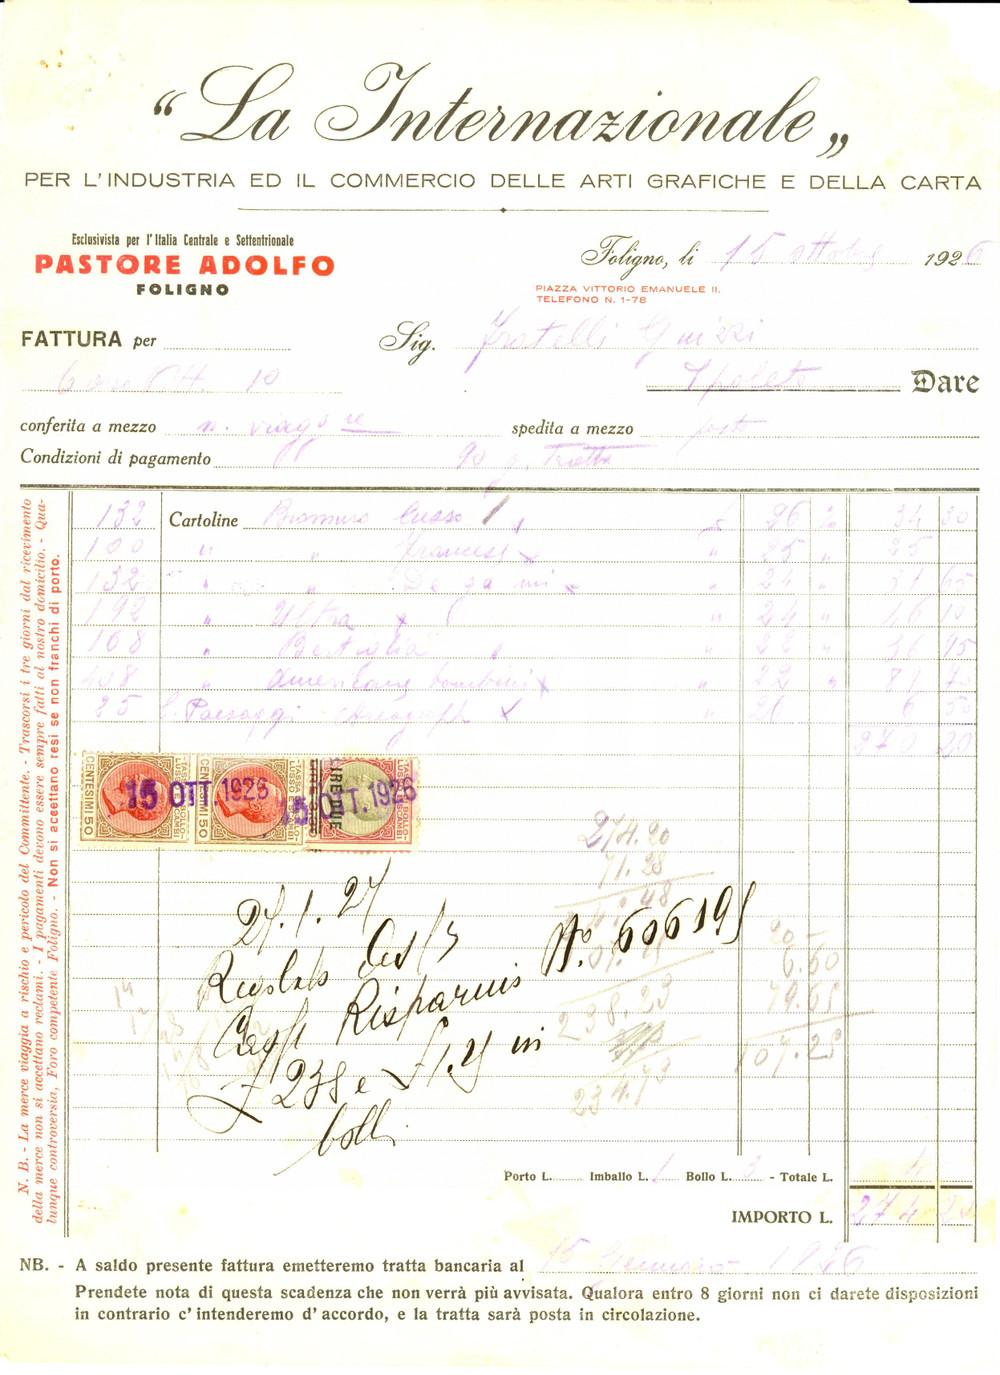 “La Internazionale„
PER L'INDUSTRIA ED IL COMMERCIO DELLE ARTI GRAFICHE E DELLA CARTA
Esclusivista per l'Italia Centrale e Settentrionale
PASTORE ADOLFO
FOLIGNO
Foligno, li 15 ottobre 1926
PIAZZA VITTORIO EMANUELE II.
TELEFONO N. 1-78
FATTURA per
Sig. Fratelli Guizzi
10
Spoleto Dare
conferita a mezzo n. viagg re
spedita a mezzo posta
Condizioni di pagamento 90 g. Tratta
132 Cartoline Bromuro lusso 26 % 34 30
100 " " Francesi " 25 " 25
132 " " De ga mi " 24 " 31 65
192 " Ultra " 24 " 46 10
168 " 22 36 95
408 " Americane bambini " 22 " 89 70
25 C. Paesaggi 26 6 50
270 20
CENTESIMI 50
CENTESIMI 50
LIRE DUE
15 OTT. 1926
15 OTT. 1926
274.20
71.28
238.23
234.73
20-
6.60
79.65
107.25
27.1.27
N.º 606195
Risparmio
£ 238 e £ 1.25 in
bolli
Porto L. Imballo L. 1 Bollo L. 3 - Totale L. 4
IMPORTO L. 274 20
N. B. - La merce viaggia a rischio e pericolo del Committente. - Trascorsi i tre giorni dal ricevimento
della merce non si accettano reclami. - I pagamenti devono essere sempre fatti al nostro domicilio. - Qua-
lunque controversia, Foro competente Foligno. - Non si accettano resi se non franchi di porto.
NB. - A saldo presente fattura emetteremo tratta bancaria al 15 Gennaio 1926
Prendete nota di questa scadenza che non verrà più avvisata. Qualora entro 8 giorni non ci darete disposizioni
in contrario c' intenderemo d' accordo, e la tratta sarà posta in circolazione.